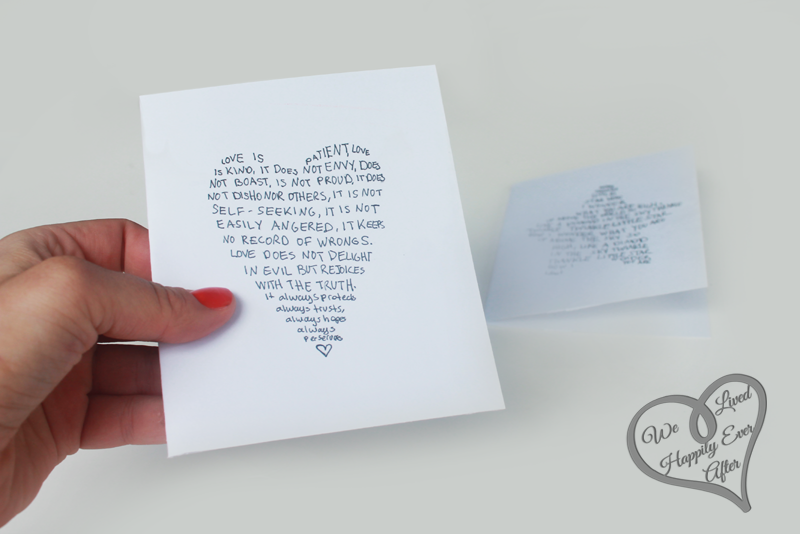 LOVE IS PATIENT LOVE
IS KIND, IT DOES NOT ENVY, DOES
NOT BOAST, IS NOT PROUD, IT DOES
NOT DISHONOR OTHERS, IT IS NOT
SELF-SEEKING, IT IS NOT
EASILY ANGERED, IT KEEPS
NO RECORD OF WRONGS.
LOVE DOES NOT DELIGHT
IN EVIL BUT REJOICES
WITH THE TRUTH.
It always protects
always trusts,
always hopes
always
perseveres
We Lived
Happily Ever
After